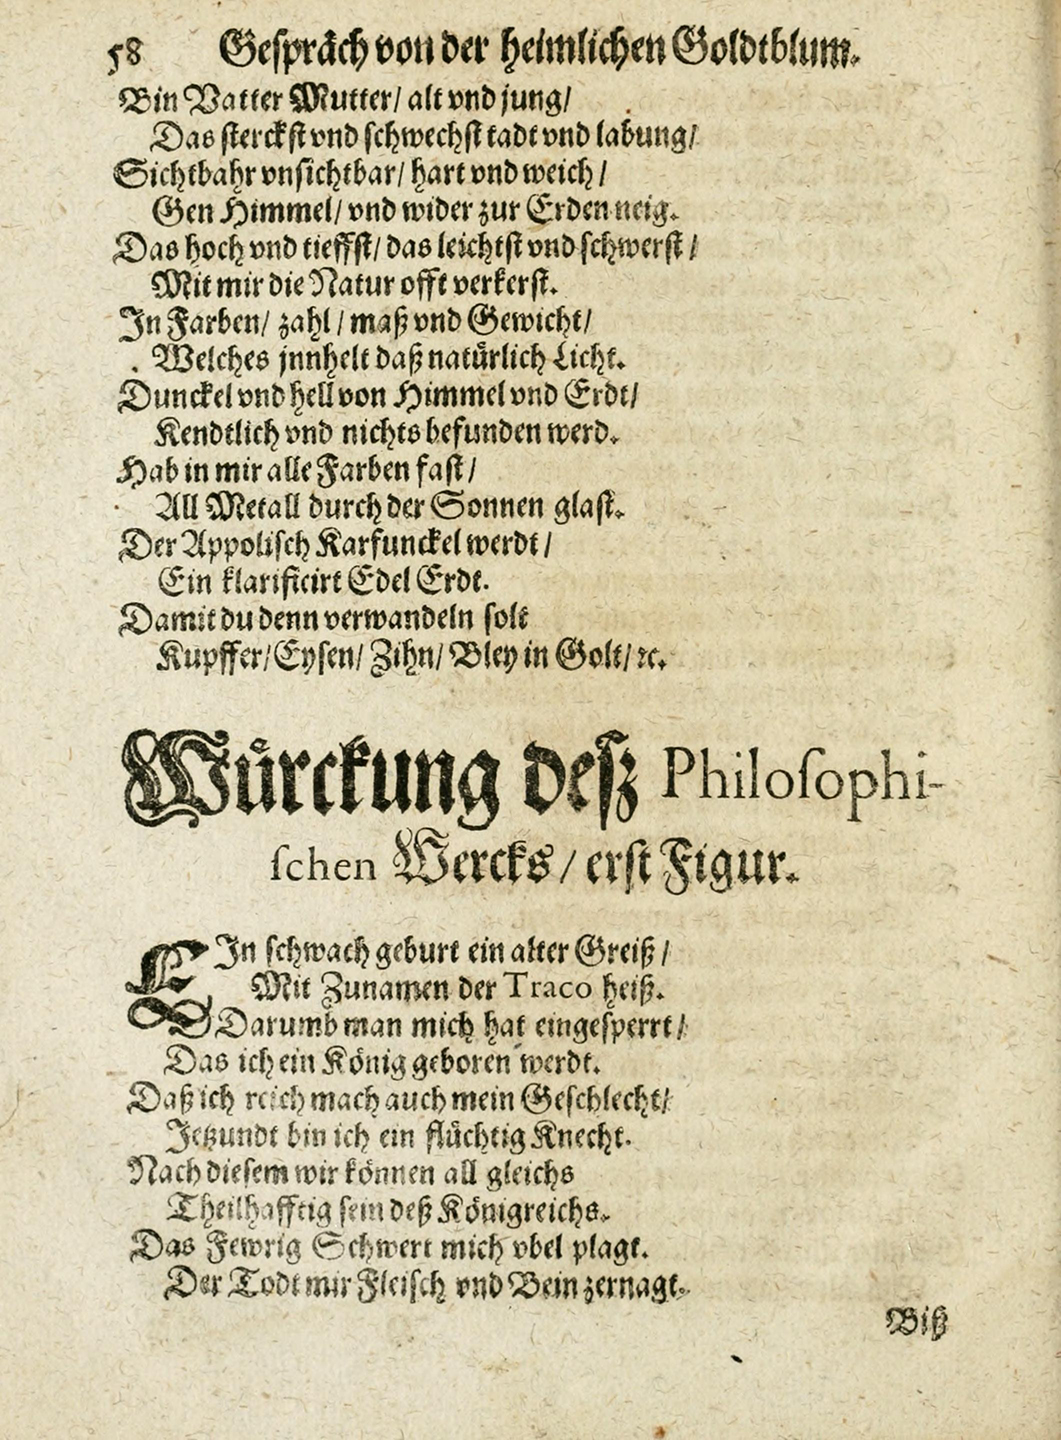 58 Gespräch von der heimlichen Goldtblum.
Bin Vatter Mutter/ alt vnd jung/
Das sterckst vnd schwechst tadt vnd labung/
Sichtbahr vnsichtbar/ hart vnd weich/
Gen Himmel/ vnd wider zur Erden neig.
Das hoch vnd tieffst/ das leichtst vnd schwerst/
Mit mir die Natur offt verkerst.
In Farben/ zahl/ maß vnd Gewicht/
Welches jnnhelt daß natürlich Licht.
Dunckel vnd hell von Himmel vnd Erdt/
Kendtlich vnd nichts befunden werd.
Hab in mir alle Farben fast/
All Metall durch der Sonnen glast.
Der Appolisch Karfunckel werdt/
Ein klarificirt Edel Erdt.
Damit du denn verwandeln solt
Kupffer/ Eysen/ Zihn/ Bley in Golt/ ꝛc.
Würckung desz Philoſophi-
ſchen Wercks/ erst Figur.
EIn schwach geburt ein alter Greiß/
Mit Zunamen der Traco heiß.
Darumb man mich hat eingesperrt/
Das ich ein König geboren werdt.
Daß ich reich mach auch mein Geschlecht/
Jetzundt bin ich ein flüchtig Knecht.
Nach diesem wir können all gleichs
Theilhafftig sein deß Königreichs.
Das Fewrig Schwert mich vbel plagt.
Der Todt mir Fleisch vnd Bein zernagt.
Biß